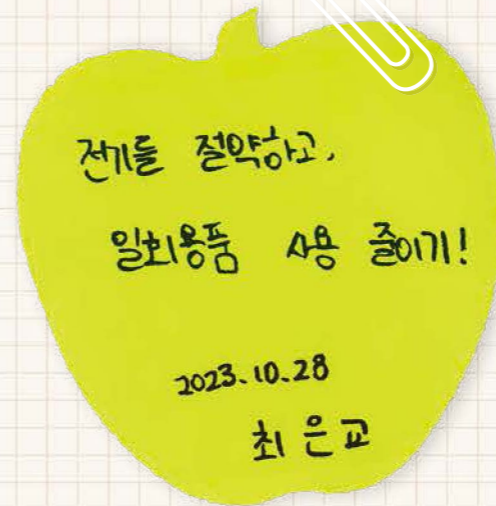 전기를 절약하고,
일회용품 사용 줄이기!
2023.10.28
최은교